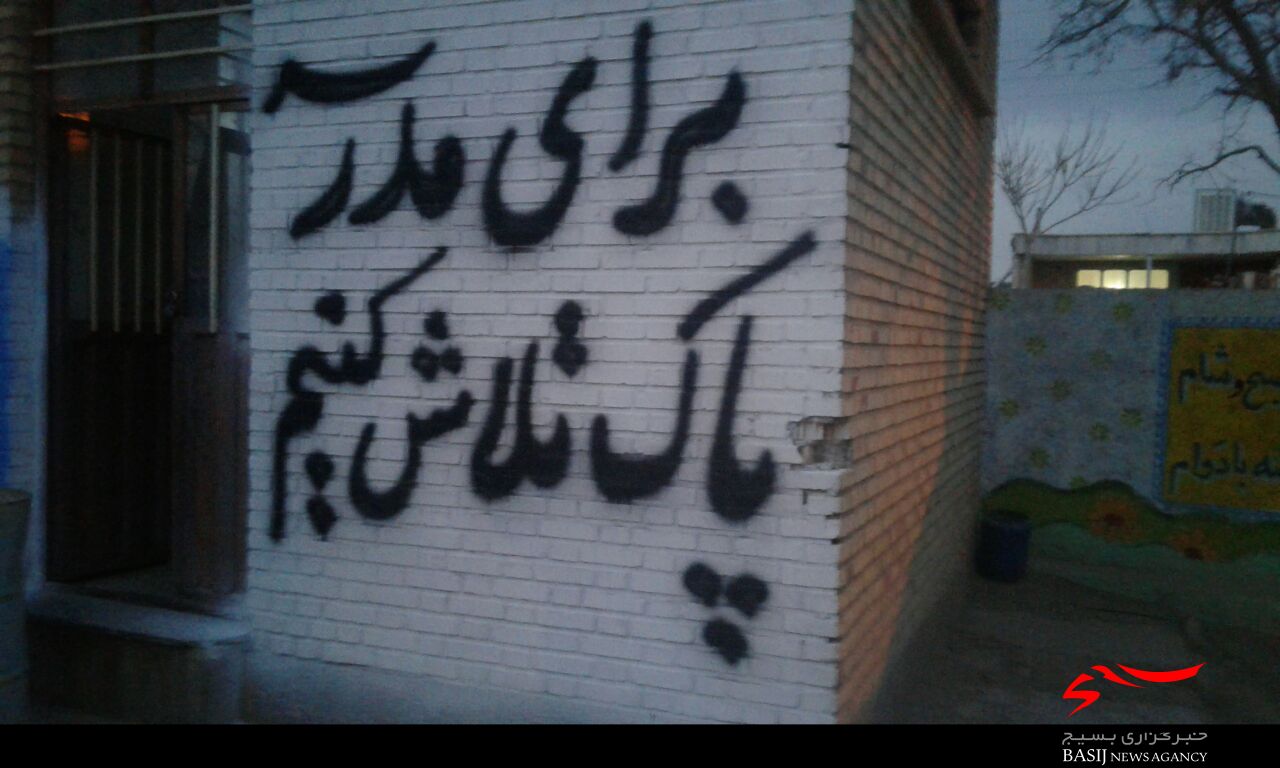 برای مدرسه
پاک تلاش کنیم
صبح و شام
بادوام
خبرگزاری بسیج
BASIJ NEWS AGANCY